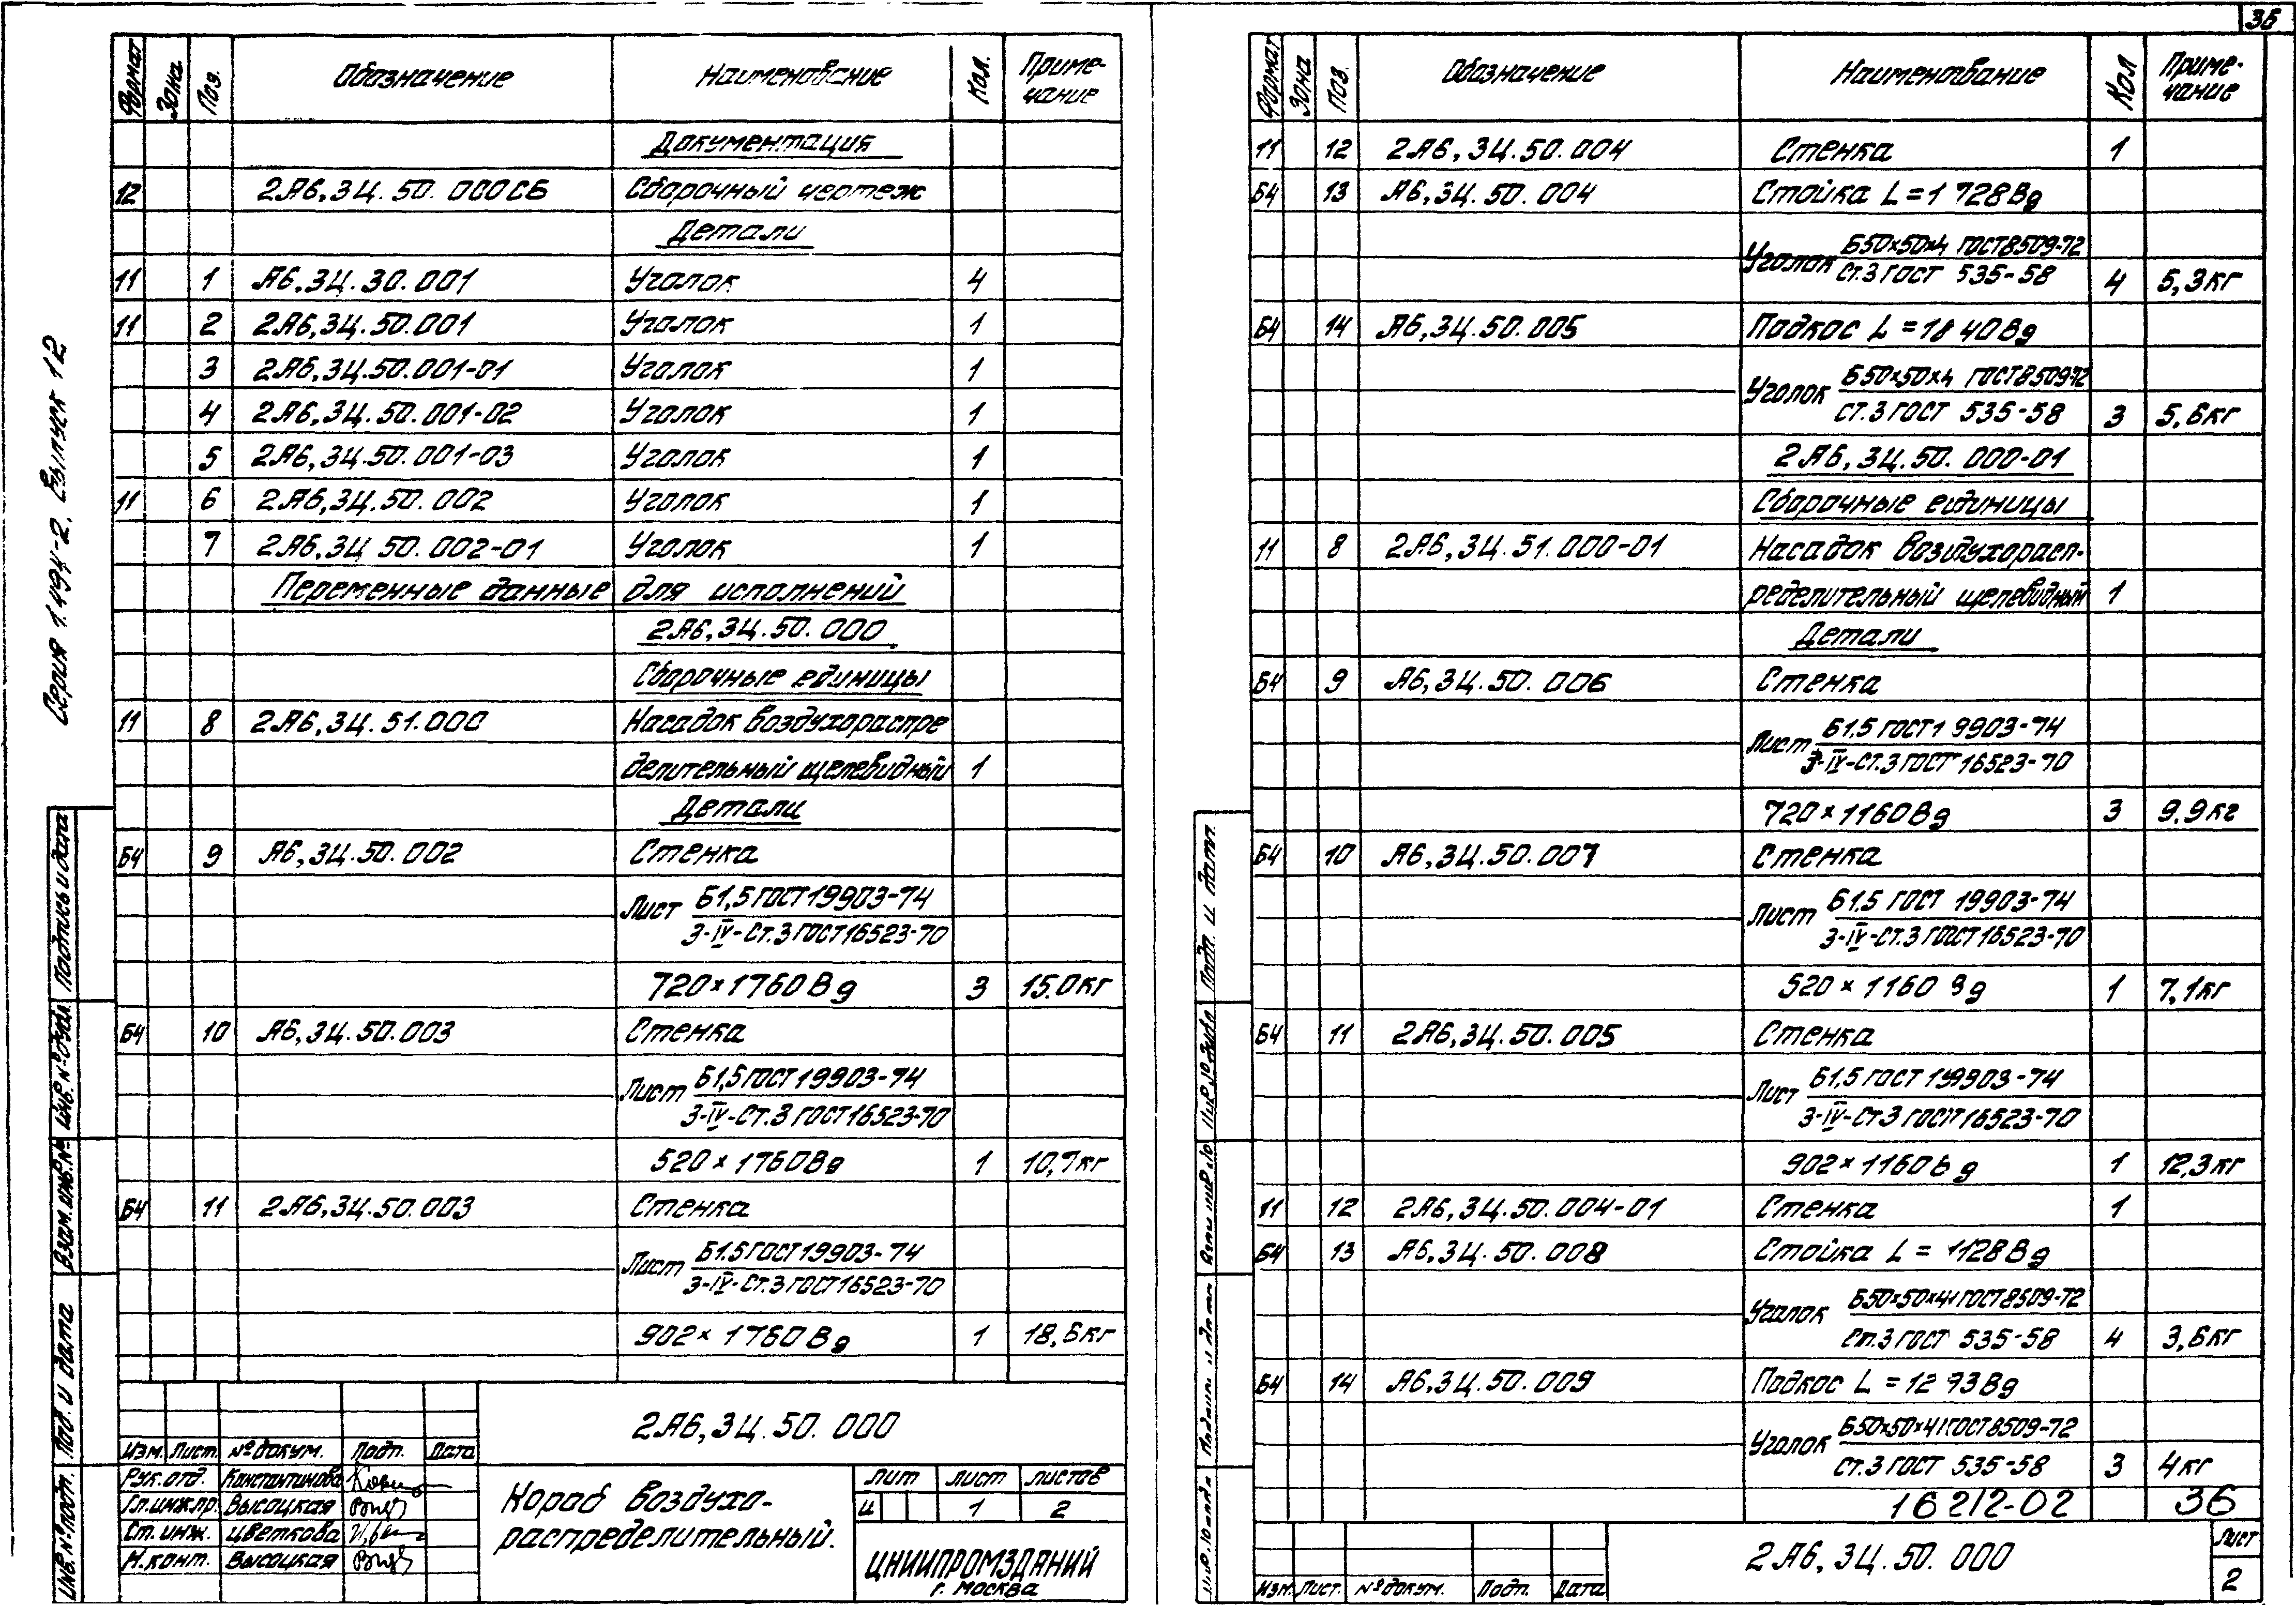 36
Серия 1.494-2. Выпуск 12
Формат Зона Поз. Обозначение Наименование Кол. Приме-
чание
Документация
12 2А6,3Ц.50.000СБ Сборочный чертеж
Детали
11 1 А6,3Ц.30.001 Уголок 4
11 2 2А6,3Ц.50.001 Уголок 1
3 2А6,3Ц.50.001-01 Уголок 1
4 2А6,3Ц.50.001-02 Уголок 1
5 2А6,3Ц.50.001-03 Уголок 1
11 6 2А6,3Ц.50.002 Уголок 1
7 2А6,3Ц 50.002-01 Уголок 1
Переменные данные для исполнений
2А6,3Ц.50.000
Сборочные единицы
11 8 2А6,3Ц.51.000 Насадок воздухораспре
делительный щелевидный 1
Детали
Б4 9 А6,3Ц.50.002 Стенка
Лист Б1,5 ГОСТ 19903-74
3-IV-Ст.3 ГОСТ 16523-70
720×1760Вg 3 15.0кг
Б4 10 А6,3Ц.50.003 Стенка
Лист Б1,5 ГОСТ 19903-74
3-IV-Ст.3 ГОСТ 16523-70
520×1760Вg 1 10,7кг
Б4 11 2А6,3Ц.50.003 Стенка
Лист Б1.5 ГОСТ 19903-74
3-IV-Ст.3 ГОСТ 16523-70
902×1760Вg 1 18,6кг
2А6,3Ц.50.000
Изм. Лист. № докум. Подп. Дата
Рук.отд. Константинова
Гл.инж.пр. Высоцкая
Ст. инж. Цветкова
Н.конт. Высоцкая
Короб воздухо-
распределительный.
Лит Лист Листов
И 1 2
ЦНИИПРОМЗДАНИЙ
г. Москва
Инв.№ подп. Под. и дата Взам.инв.№ Инв.№ дубл. Подпись и дата
Формат Зона Поз. Обозначение Наименование Кол Приме-
чание
11 12 2А6,3Ц.50.004 Стенка 1
Б4 13 А6,3Ц.50.004 Стойка L=1728Вg
Уголок Б50×50×4 ГОСТ 8509-72
Ст.3 ГОСТ 535-58 4 5,3кг
Б4 14 А6,3Ц.50.005 Подкос L=1840Вg
Уголок Б50×50×4 ГОСТ 8509-72
Ст.3 ГОСТ 535-58 3 5,6кг
2А6,3Ц.50.000-01
Сборочные единицы
11 8 2А6,3Ц.51.000-01 Насадок воздухорасп-
ределительный щелевидный 1
Детали
Б4 9 А6,3Ц.50.006 Стенка
Лист Б1.5 ГОСТ 19903-74
3-IV-Ст.3 ГОСТ 16523-70
720×1160Вg 3 9.9кг
Б4 10 А6,3Ц.50.007 Стенка
Лист Б1.5 ГОСТ 19903-74
3-IV-Ст.3 ГОСТ 16523-70
520×1160 Вg 1 7,1кг
Б4 11 2А6,3Ц.50.005 Стенка
Лист Б1,5 ГОСТ 19903-74
3-IV-Ст.3 ГОСТ 16523-70
902×1160Вg 1 12,3кг
11 12 2А6,3Ц.50.004-01 Стенка 1
Б4 13 А6,3Ц.50.008 Стойка L=1128Вg
Уголок Б50×50×4 ГОСТ 8509-72
Ст.3 ГОСТ 535-58 4 3,6кг
Б4 14 А6,3Ц.50.009 Подкос L=1273Вg
Уголок Б50×50×4 ГОСТ 8509-72
Ст.3 ГОСТ 535-58 3 4кг
16212-02 36
2А6,3Ц.50.000
Лист
2
Изм. Лист. № докум. Подп. Дата